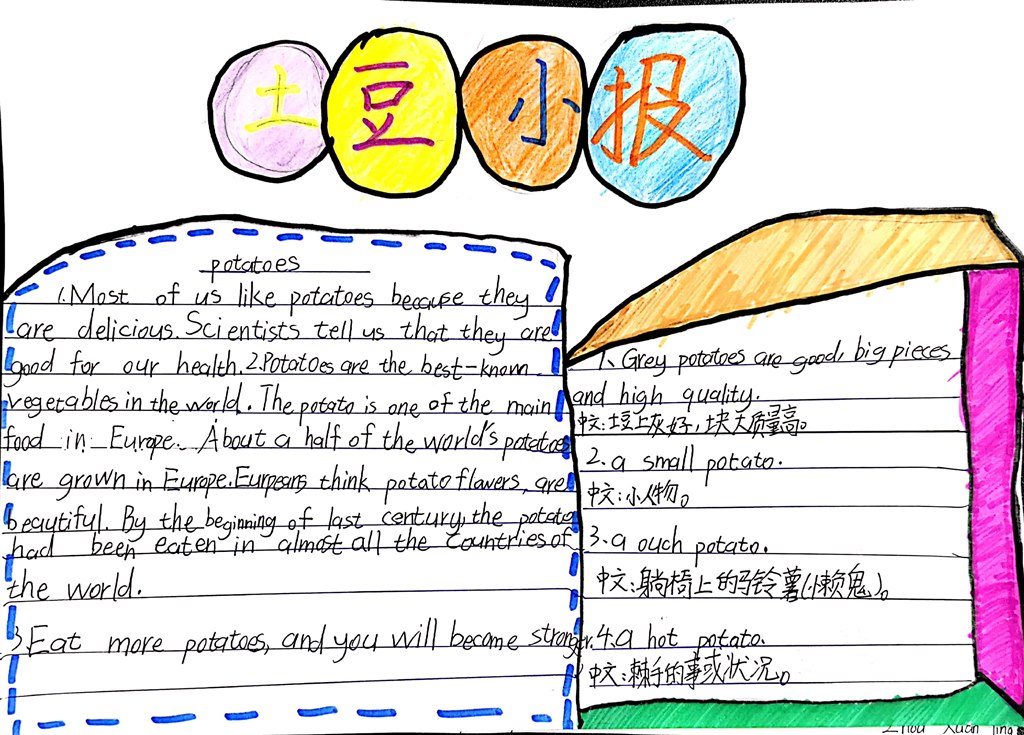 土豆小报
potatoes
1.Most of us like potatoes because they
are delicious. Scientists tell us that they are
good for our health. 2.Potatoes are the best-known
vegetables in the world. The potato is one of the main
food in Europe. About a half of the world's potatoes
are grown in Europe. Eurpeans think potato flawers are
beautiful. By the beginning of last century, the potato
had been eaten in almost all the countries of
the world.
3.Eat more potatoes, and you will become stronger.
1. Grey potatoes are good, big pieces
and high quality.
中文:土豆上灰好,块大质量高。
2. a small potato.
中文:小人物。
3. a ouch potato.
中文:躺椅上的马铃薯(懒鬼)。
4. a hot potato.
中文:棘手的事或状况。
Zhou Xuan